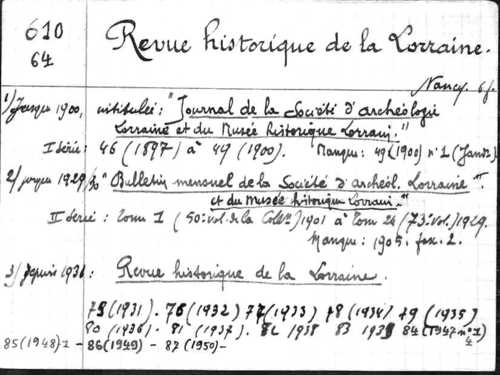 610
64
Revue historique de la Lorraine.
Nancy. 6f.
1/ Jusque 1900, intitulée: "Journal de la Société d'archéologie
Lorraine et du Musée historique Lorrain."
I Série: 46 (1897) à 49 (1900). Manque: 49 (1900) n° 1 (Janv.)
2/ jusque 1929/30 "Bulletin mensuel de la Société d'archéol. Lorraine
et du Musée historique Lorrain."
II Série: tom 1 (50e vol. de la Coll.on) 1901 à Tom 24 (73e Vol.) 1929.
Manque: 1905. fax. 2.
3/ Depuis 1931: Revue historique de la Lorraine.
75 (1931). 76 (1932) 77 (1933) 78 (1934) 79 (1935)
80 (1936). 81 (1937). 82 1938 83 1939 84 (1947 n° 1)
4
85 (1948)-1 - 86 (1949) - 87 (1950) -